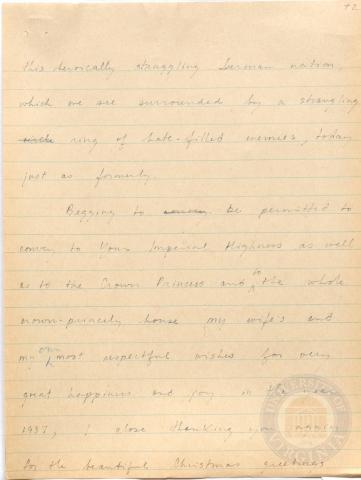 42
this heroically struggling German nation,
which we see surrounded by a strangling
circle ring of hate-filled enemies, today
just as formerly.
Begging to convey be permitted to
convey to Your Imperial Highness as well
as to the Crown Princess and to the whole
crown-princely house my wife's and
my own most respectful wishes for very
great happiness and joy in the new
1937, I close thanking you again
for the beautiful Christmas greetings
UNIVERSITY OF VIRGINIA